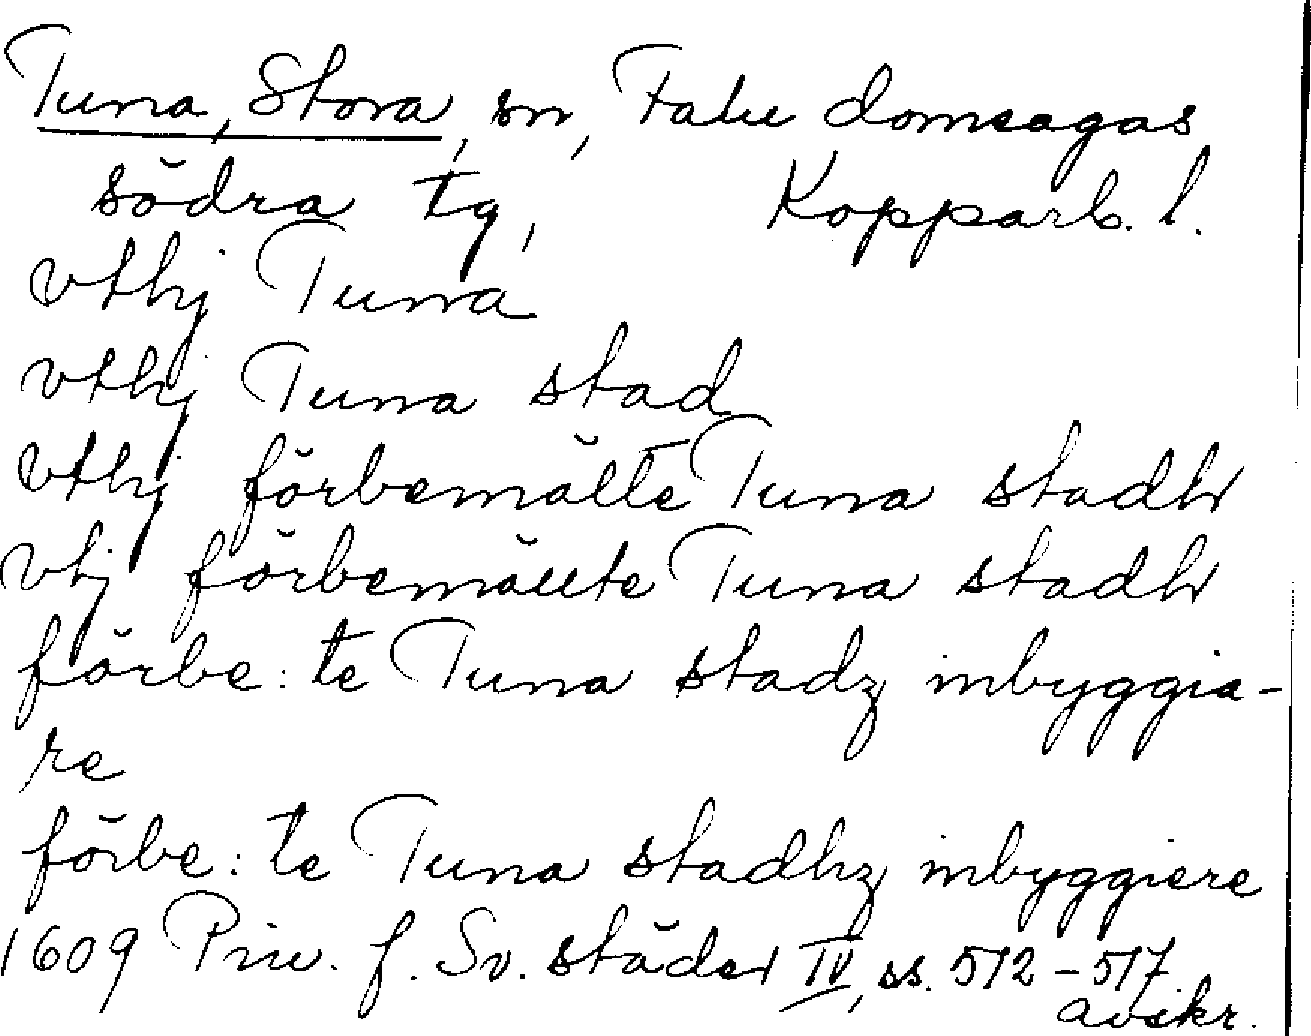 Tuna, Stora, sn, Falu domsagas
södra tg, Kopparb. l.
vthj Tuna
vthj Tuna stad
vthj förbemälte Tuna stadh
vtj förbemällte Tuna stadh
förbe: te Tuna stadz inbyggia-
re
förbe: te Tuna stadhz inbyggiere
1609 Priv. f. Sv. städer IV, ss. 512-517
avskr.